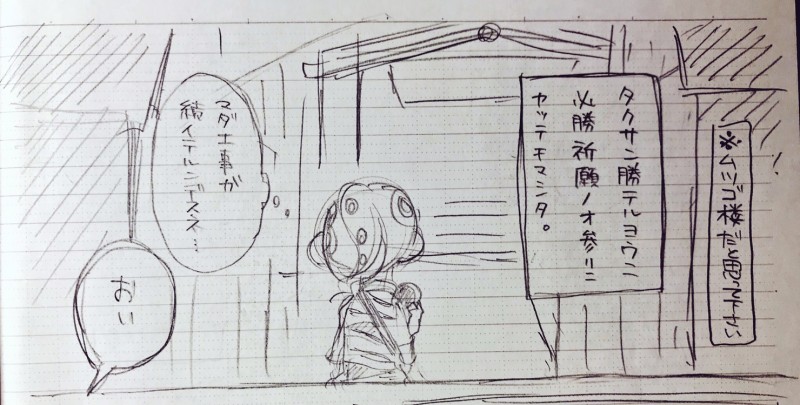 ※ムツゴ楼だと思って下さい
タクサン勝テルヨウニ
必勝祈願ノオ参リニ
ヤッテキマシタ。
マダ工事が
続イテルンデスネ…
おい